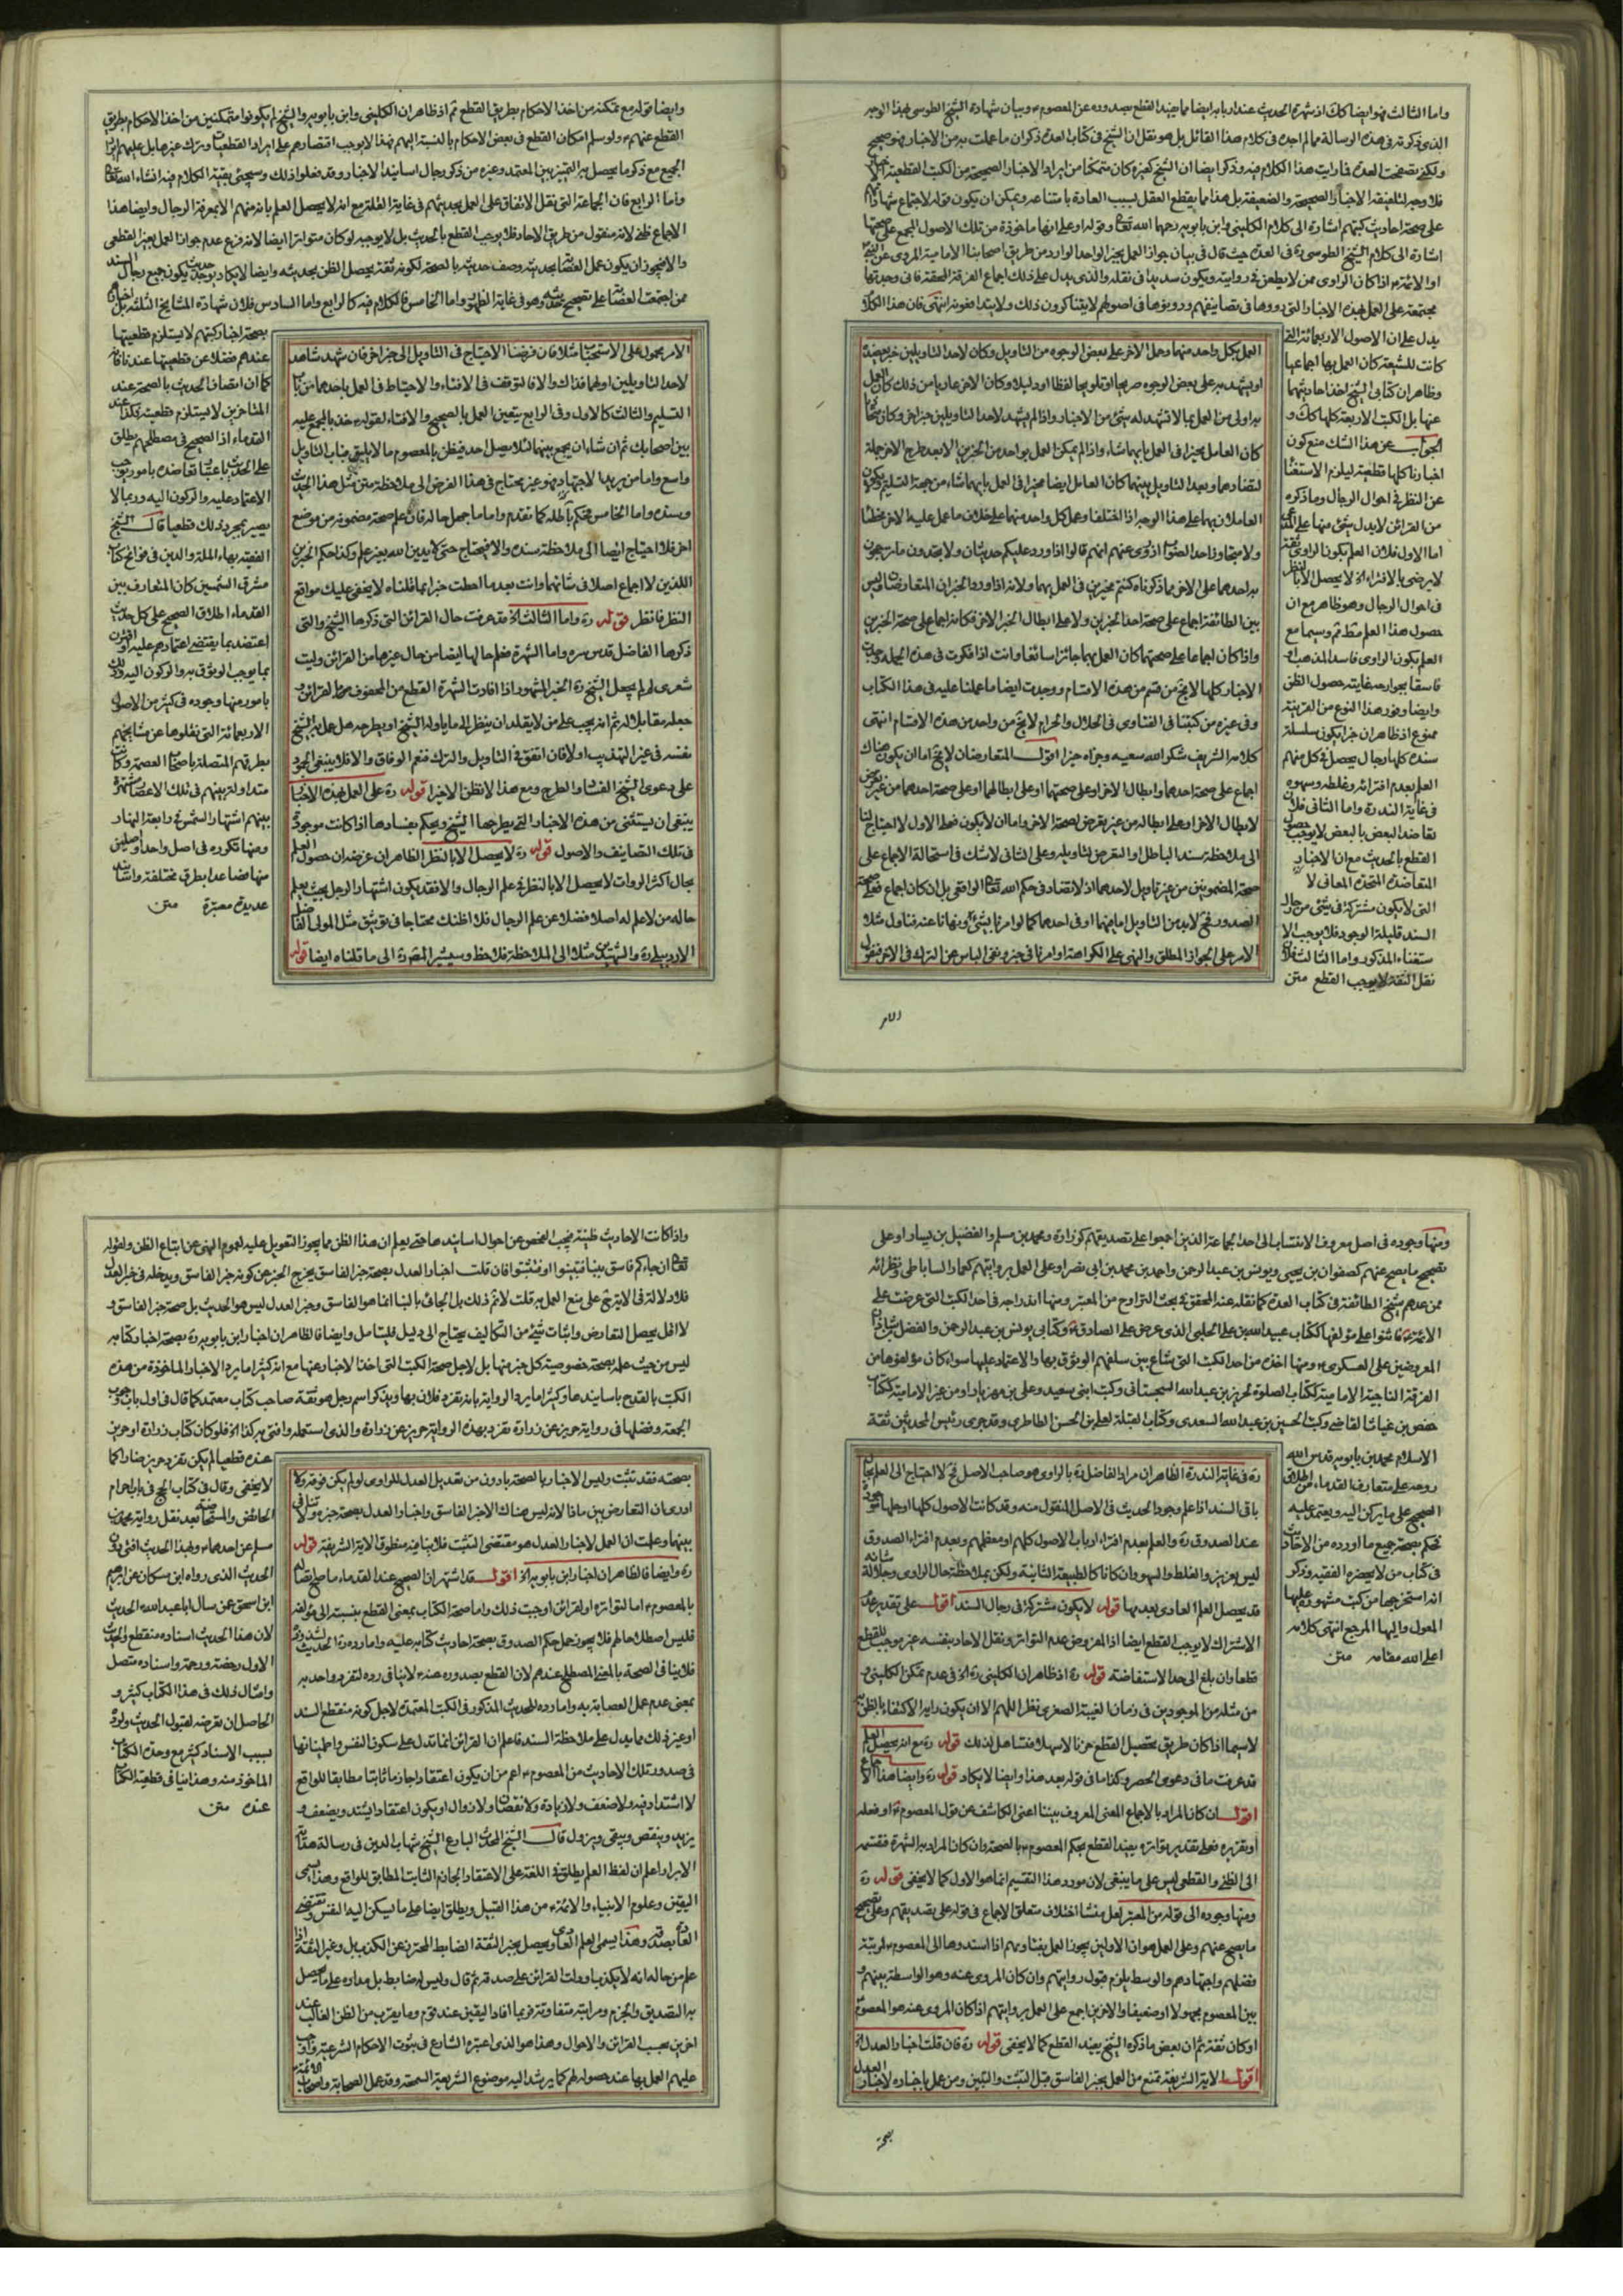 واما الثالث فهو ايضا كك اذ شهرة الحديث عند اربابه ايضا مما يفيد القطع بصدوره عن المعصوم ع وبيان شهادة الشيخ الطوسي بهذا الوجه
الذى ذكرته فى هذه الرسالة مما لم اجده فى كلام هذا القائل بل هو نقل ان الشيخ فى كتاب العدة ذكر ان ما عملت به من الاخبار فهو صحيح
ولكنى تصفحت العدة فما رايت هذا الكلام فيه وذكر ايضا ان الشيخ كغيره كان متمكنا من ايراد الاخبار الصحيحة من الكتب القطعية
فلا وجه لتلفيقه الاخبار الصحيحة والضعيفة بل هذا مما يقطع العقل بسبب العادة بامتناعه ويمكن ان يكون قوله لاجتماع شهاداتهم
على صحة احاديث كتبهم اشارة الى كلام الكلينى وابن بابويه رحمهما الله تعا وقوله او على انها ماخوذة من تلك الاصول المجمع على صحتها
اشارة الى كلام الشيخ الطوسى ره فى العدة حيث قال فى بيان جواز العمل بخبر الواحد الوارد من طريق اصحابنا الامامية المروى عن النبى
او الائمة ع اذا كان الراوى ممن لا يطعن فى روايته ويكون سديدا فى نقله والذى يدل على ذلك اجماع الفرقة المحقة فانى وجدتها
مجتمعة على العمل بهذه الاخبار التى رووها فى تصانيفهم ودونوها فى اصولهم لا يتناكرون ذلك ولا يتدافعونه انتهى فان هذا الكلام
يدل على ان الاصول الاربعمائة التى
كانت للشيعة كان العمل بها اجماعيا
وظاهر ان كتابى الشيخ اخذ احاديثهما
عنها بل الكتب الاربعة كلها كك و
الجواب عن هذا الشك منع كون
اخبارنا كلها قطعية ليلزم الاستغناء
عن النظر فى احوال الرجال وما ذكره
من القرائن لا يدل شئ منها على المدعى
اما الاول فلان العلم بكون الراوى ثقة
لا يرضى بالافتراء اه لا يحصل الا بالنظر
فى احوال الرجال وهو ظاهر مع ان
حصول هذا العلم مقط ثم وسيما مع
العلم بكون الراوى فاسد المذهب او
فاسقا بجوارحه غايته حصول الظن
وايضا وفور هذا النوع من القرينة
ممنوع اذ ظاهر ان خبرا يكون سلسلة
سنده كلها رجال يحصل فى كل منهم
العلم بعدم افترائه وغلطه وسهوه
فى غاية الندرة واما الثانى فلان
تعاضد البعض بالبعض لا يوجب حصول
القطع بالحديث مع ان الاخبار
المتعاضدة المتحدة المعانى لا
التى لا يكون مشتركة فى شئ من رجال
السند قليلة الوجود فلا يوجب الا
ستغناء المذكور واما الثالث فلان
نقل الثقة لا يوجب القطع متن
العمل بكل واحد منهما وحمل الاخر على بعض الوجوه من التاويل وكان لاحد التاويلين خبر يعضده
او يشهد به على بعض الوجوه صريحا او تلويحا لفظا او دليلا وكان الاخر عاريا من ذلك كان العمل
به اولى من العمل بما لا تشهد له شئ من الاخبار واذا لم يشهد لاحد التاويلين خبر اخر وكان متحاذيا
كان العامل مخيرا فى العمل بايهما شاء واذا لم يمكن العمل بواحد من الخبرين الا بعد طرح الاخر جملة
لتضادهما وبعد التاويل بينهما كان العامل ايضا مخيرا فى العمل بايهما شاء من جهة التسليم ولا يكون
العاملان بهما على هذا الوجه اذا اختلفا وعمل كل واحد منهما على خلاف ما عمل عليه الاخر مخطئا
ولا متجاوزا حد الصواب اذ روى عنهم انهم قالوا اذا ورد عليكم حديثان ولا تجدون ما ترجحون
به احدهما على الاخر مما ذكرناه كنتم مخيرين فى العمل بهما ولانه اذا ورد الخبران المتعارضان وليس
بين الطائفة اجماع على صحة احد الخبرين ولا على ابطال الخبر الاخر فكانه اجماع على صحة الخبرين
واذا كان اجماعا على صحتهما كان العمل بهما جائزا سائغا وانت اذا فكرت فى هذه الجملة وجدت
الاخبار كلها لا يخ من قسم من هذه الاقسام ووجدت ايضا ما عملنا عليه فى هذا الكتاب
وفى غيره من كتبنا فى الفتاوى فى الحلال والحرام لا يخ من واحد من هذه الاقسام انتهى
كلامه الشريف شكر الله سعيه وجزاه خيرا اقول المتعارضان لا يخ اما ان يكون هناك
اجماع على صحة احدهما وابطال الاخر او على صحتهما او على ابطالهما او على صحة احدهما من غير تعرض
لابطال الاخر او على ابطاله من غير تعرض لصحة الاخر واما ان لا يكون فعلى الاول لا احتياج لنا
الى ملاحظة سند الباطل او التعرض لتاويله وعلى الثانى لا شك فى استحالة الاجماع على
صحة المضمونين من غير تاويل لاحدهما اذ لا تضاد فى حكم الله تعا الواقعى بل ان كان اجماع فعلى صحة
الصدور فح لابد من التاويل اما فيهما او فى احدهما كما لو امرنا بشئ ونهانا عنه فتاول مثلا
الامر على الجواز المطلق والنهى على الكراهة او امرنا فى خبر ونفى الباس عن الترك فى الاخر فنقول
الامر
وايضا قوله مع تمكنه من اخذ الاحكام بطريق القطع ثم اذ ظاهر ان الكلينى وابن بابويه والشيخ لم يكونوا متمكنين من اخذ الاحكام بطريق
القطع عنهم ع ولو سلم امكان القطع فى بعض الاحكام بالنسبة اليهم فهذا لا يوجب اقتصارهم على ايراد القطعيات وترك غيرها بل عليهم ايراد
الجميع مع ذكر ما يحصل به التميز بين المعتمد وغيره من ذكر رجال اسانيد الاخبار وقد فعلوا ذلك وسيجئ بقية الكلام فيه انشاء الله تعا
واما الرابع فان الجماعة التى نقل الاتفاق على العمل بحديثهم فى غاية القلة مع انه لا يحصل العلم بانه منهم الا بمعرفة الرجال وايضا هذا
الاجماع ظنى لانه منقول من طريق الاحاد فلا يوجب القطع بالحديث بل لا يوجبه لو كان متواترا ايضا لانه فرع عدم جواز العمل بغير القطعى
والا فيجوز ان يكون عمل العصابة بحديثه ووصف حديثه بالصحة لكونه ثقة يحصل الظن بحديثه وايضا لا يكاد يوجد حديث يكون جميع رجال السند
ممن اجتمعت العصابة على تصحيح حديثه وهو فى غاية الظهور واما الخامس فالكلام فيه كالرابع واما السادس فلان شهادة المشايخ الثلثة بل اخبارهم
بصحة اخبار كتبهم لا يستلزم قطعيتها
عندهم فضلا عن قطعيتها عندنا فانه
كما ان اتصاف الحديث بالصحة عند
المتاخرين لا يستلزم قطعيته فكذا عند
القدماء اذ الصحيح فى مصطلحهم يطلق
على الحديث باعتبار تعاضده بامور يوجب
الاعتماد عليه والركون اليه وربما لا
يصير بمجرد ذلك قطعيا قال الشيخ
الفقيه بهاء الملة والدين فى فواتح كتاب
مشرق الشمسين كان المتعارف بين
القدماء اطلاق الصحيح على كل حديث
اعتضد بما يقتضى اعتمادهم عليه او اقترن
بما يوجب الوثوق به والركون اليه وذلك
بامور منها وجوده فى كثير من الاصول
الاربعمائة التى نقلوها عن مشايخهم
بطرقهم المتصلة باصحاب العصمة وكانت
متداولة بينهم فى تلك الاعصار مشتهرة
بينهم اشتهار الشمس فى رابعة النهار
ومنها تكرره فى اصل واحد او اصلين
منها فصاعدا بطرق مختلفة واسانيد
عديدة معتبرة متن
الامر محمول على الاستحباب مثلا فان فرضنا الاحتياج فى التاويل الى خبر اخر فان شهد شاهد
لاحد التاويلين او لهما فذاك والا فالتوقف فى الافتاء والاحتياط فى العمل باحدهما من باب
التسليم والثالث كالاول وفى الرابع يتعين العمل بالصحيح والافتاء لقوله ع خذ بالمجمع عليه
بين اصحابك ثم ان شاء ان يجمع بينهما لئلا يصل احد فيظن بالمعصوم ما لا يليق فباب التاويل
واسع واما من يريد الاجتهاد فهو غير محتاج فى هذا الفرض الى ملاحظة متن مثل هذا الحديث
وسنده واما الخامس فحكم باطله كما تقدم واما ما جهل حاله فان علم صحة مضمونه من موضع
اخر فلا احتياج ايضا الى ملاحظة سنده والا فيحتاج حتى لا يدين الله بغير علم وكذا حكم الخبرين
اللذين لا اجماع اصلا فى شانهما وانت بعد ما احطت خبرا بما قلناه لا يخفى عليك مواقع
النظر فانظر قوله ره واما الثالث اه قد عرفت حال القرائن التى ذكرها الشيخ والتى
ذكرها الفاضل قدس سره واما الشهرة فعلم حالها ايضا من حال غيرها من القرائن وليت
شعرى لم لم يجعل الشيخ ره الخبر المشهور اذا افادت الشهرة القطع من المحفوف بالقرائن و
جعله مقابلا له ثم انه يجب على من لا يقلد ان ينظر الى ما ياوله الشيخ او يطرحه هل عمل به الشيخ
نفسه فى غير التهذيب او لا فان اتفق فى التاويل والترك فنعم الوفاق والا فلا ينبغى الجمود
على دعوى الشيخ الفساد والطرح ومع هذا لا نظن الاخير قوله ره على العمل بهذه الاخبار
ينبغى ان يستثنى من هذه الاخبار التى يطرحها الشيخ ويحكم بفسادها اذا كانت موجودة
فى تلك التصانيف والاصول قوله ره لا يحصل الا بالنظر الظاهر ان غرضه ان حصول العلم
بحال اكثر الروات لا يحصل الا بالنظر فى علم الرجال والا فقد يكون اشتهار الرجل بحيث يعلم
حاله من لا علم له اصلا فضلا عن علم الرجال فلا اظنك محتاجا فى توثيق مثل المولى الفاضل
الاردبيلى ره والشهيدين مثلا الى الملاحظة فلاحظ وسيشير المصره الى ما قلناه ايضا قوله
ومنها وجوده فى اصل معروف الانتساب الى احد الجماعة الذين اجمعوا على تصديقهم كزرارة ومحمد بن مسلم والفضيل بن يسار او على
تصحيح ما يصح عنهم كصفوان بن يحيى ويونس بن عبد الرحمن واحمد بن محمد بن ابى نصر او على العمل بروايتهم كعمار الساباطى ونظرائه
ممن عدهم شيخ الطائفة فى كتاب العدة كما نقله عنه المحقق فى بحث التراوح من المعتبر ومنها اندراجه فى احد الكتب التى عرضت على
الائمة ع فاثنوا على مؤلفيها ككتاب عبيد الله بن على الحلبى الذى عرض على الصادق ع وكتابى يونس بن عبد الرحمن والفضل بن شاذان
المعروضين على العسكرى ع ومنها اخذه من احد الكتب التى شاع بين سلفهم الوثوق بها والاعتماد عليها سواء كان مؤلفوها من
الفرقة الناجية الامامية ككتاب الصلوة لحريز بن عبد الله السجستانى وكتب ابنى سعيد وعلى بن مهزيار او من غير الامامية ككتاب
حفص بن غياث القاضى وكتب الحسين بن عبيد الله السعدى وكتاب القبلة لعلى بن الحسن الطاطرى وقد جرى رئيس المحدثين ثقة
الاسلام محمد بن بابويه قدس الله
روحه على متعارف القدماء من اطلاق
الصحيح على ما يركن اليه ويعتمد عليه
فحكم بصحة جميع ما اورده من الاحاديث
فى كتاب من لا يحضره الفقيه وذكر
انه استخرجها من كتب مشهورة عليها
المعول واليها المرجع انتهى كلامه
اعلى الله مقامه متن
ره فى غاية الندرة الظاهر ان مراد الفاضل ره بالراوى هو صاحب الاصل فح لا احتياج الى العلم بحال
باقى السند اذا علم وجود الحديث فى الاصل المنقول منه وقد كانت الاصول كلها او جلها موجودة
عند الصدوق ره والعلم بعدم افتراء ارباب الاصول كلهم او معظمهم وبعدم افتراء الصدوق
ليس بعزيز والغلط والسهو وان كانا كالطبيعة الثانية ولكن بملاحظة حال الراوى وجلالة شانه
قد يحصل العلم العادى بعدمها قوله لا يكون مشتركة فى رجال السند اقول على تقدير عدم
الاشتراك لا يوجب القطع ايضا اذ المفروض عدم التواتر ونقل الاحاد بنفسه غير موجب للقطع
قطعا وان بلغ الى حد الاستفاضة قوله ره اذ ظاهر ان الكلينى ره اه فى عدم تمكن الكلينى و
من مثله من الموجودين فى زمان الغيبة الصغرى نظر اللهم الا ان يكون رايه الاكتفاء بالظن
لا سيما اذا كان طريق تحصيل القطع حزنا لا سهلا فتساهل لذلك قوله ره مع انه لا يحصل العلم
قد عرفت ما فى دعوى الحصر وكذا ما فى قوله بعد هذا وايضا لا يكاد قوله ره وايضا هذا الاجماع
اقول ان كان المراد بالاجماع المعنى المعروف بيننا اعنى الكاشف عن قول المعصوم ع او فعله
او تقريره فعلى تقدير تواتره يفيد القطع بحكم المعصوم ع بالصحة وان كان المراد به الشهرة فقسمته
الى الظنى والقطعى ليس على ما ينبغى لان مورد هذا التقسيم انما هو الاول كما لا يخفى قوله ره
ومنها وجوده الى قوله من المعتبر لعل منشا اختلاف متعلق الاجماع فى قوله على تصديقهم وعلى تصحيح
ما يصح عنهم وعلى العمل هو ان الاولين يجوز العمل بفتاويهم اذا اسندوها الى المعصوم ع لمرتبة
فضلهم واجتهادهم والوسط يلزم قبول روايتهم وان كان المروى عنه وهو الواسطة بينهم و
بين المعصوم مجهولا او ضعيفا والاخرين اجمع على العمل بروايتهم اذا كان المروى عنه هو المعصوم
او كان ثقة ثم ان بعض ما ذكره الشيخ يفيد القطع كما لا يخفى قوله ره فان قلت اخبار العدل اه
اقول الاية الشريفة تمنع من العمل بخبر الفاسق قبل التثبت والتبين ومن عمل باخباره لاخبار العدل
بصحته
واذا كانت الاحاديث ظنية فيجب الفحص عن احوال اسانيدها حتى يعلم ان هذا الظن مما يجوز التعويل عليه لعموم النهى عن اتباع الظن ولقوله
تعا ان جاءكم فاسق بنبا فتبينوا او فتثبتوا فان قلت اخبار العدل بصحة خبر الفاسق يخرج الخبر عن كونه خبر الفاسق ويدخله فى خبر العدل
فلا دلالة فى الاية ح على منع العمل به قلت لا ثم ذلك بل الجائى بالنبا انما هو الفاسق وخبر العدل ليس هو الحديث بل صحة خبر الفاسق و
لا اقل يحصل التعارض واثبات شئ من التكاليف يحتاج الى دليل فليتامل وايضا فالظاهر ان اخبار ابن بابويه ره بصحة اخبار كتابه
ليس من حيث علمه بصحة خصوصية كل خبر منها بل لاجل صحة الكتب التى اخذ الاخبار عنها مع انه كثيرا ما يرد الاخبار الماخوذة من هذه
الكتب بالقدح باسانيدها وكثيرا ما يرد الرواية بانه تفرد فلان بها ويذكر اسم رجل هو ثقة صاحب كتاب معتمد كما قال فى اول باب وجوب
الجمعة وفضلها فى رواية حريز عن زرارة تفرد بهذه الرواية حريز عن زرارة والذى استعمله وافتى به كذا اه فلو كان كتاب زرارة او حريز
عنده قطعيا لم يكن تفرد حريز ضارا كما
لا يخفى وقال فى كتاب الحج فى باب احرام
الحائض والمستحاضة بعد نقل رواية محمد بن
مسلم عن احدهما ع وبهذا الحديث افتى دون
الحديث الذى رواه ابن مسكان عن ابراهيم
ابن اسحق عن سال ابا عبد الله ع الحديث
لان هذا الحديث اسناده منقطع والحديث
الاول رخصة ورحمة واسناده متصل
وامثال ذلك فى هذا الكتاب كثير و
الحاصل ان تعرضه لقبول الحديث ولرده
بسبب الاسناد كثير مع وحدة الكتاب
الماخوذ منه وهذا ينافى قطعية الكتاب
عنده متن
بصحته فقد تثبت وليس الاخبار بالصحة بادون من تعديل العدل للراوى لو لم يكن فوقه ولا
ادرى ان التعارض بين ماذا لانه ليس هناك الا خبر الفاسق واخبار العدل بصحة خبره ولا تنافى
بينهما وعلمت ان العمل لاخبار العدل هو مقتضى التثبت فلا ينافيه منطوق الاية الشريفة قوله
ره وايضا فالظاهر ان اخبار ابن بابويه اه اقول قد اشتهر ان الصحيح عند القدماء ما صح اتصاله
بالمعصوم ع اما لتواتره او لقرائن اوجبت ذلك واما صحة الكتاب بمعنى القطع بنسبته الى مؤلفه
فليس اصطلاحا لهم فلا يجوز حمل حكم الصدوق بصحة احاديث كتابه عليه واما رده ره الحديث لشذوذه
فلا ينافى الصحة بالمعنى المصطلح عندهم لان القطع بصدوره عنه ع لا ينافى رده لتفرد واحد به
بمعنى عدم عمل العصابة به واما رده للحديث المذكور فى الكتب المعتمدة لاجل كونه منقطع السند
او غير ذلك مما يدل على ملاحظة السند فاعلم ان القرائن انما تدل على سكون النفس واطمينانها
فى صدور تلك الاحاديث من المعصوم ع اعم من ان يكون اعتقادا جازما ثابتا مطابقا للواقع
لا اشتداد فيه ولا ضعف ولا زيادة ولا نقصان ولا زوال او يكون اعتقادا يشتد ويضعف و
يزيد وينقص ويبقى ويزول قال الشيخ المحدث البارع الشيخ شهاب الدين فى رسالة هداية
الابرار اعلم ان لفظ العلم يطلق فى اللغة على الاعتقاد الجازم الثابت المطابق للواقع وهذا يسمى
اليقين وعلوم الانبياء والائمة ع من هذا القبيل ويطلق ايضا على ما يسكن اليه النفس وتقتضى
العادة بصدقه وهذا يسمى العلم العادى ويحصل بخبر الثقة الضابط المتحرز عن الكذب بل وغير الثقة اذا
علم من حاله انه لا يكذب او دلت القرائن على صدقه ثم قال وليس له ضابط بل مداره على ما يحصل
به التصديق والجزم ومراتبه متفاوتة فربما افاد اليقين عند قوم وما يقرب من الظن الغالب عند
اخرين بحسب القرائن والاحوال وهذا هو الذى اعتبره الشارع فى ثبوت الاحكام الشرعية واوجب
عليهم العمل بها عند حصوله لهم كما يرشد اليه موضوع الشريعة السمحة وقد عمل الصحابة واصحاب الائمة ع